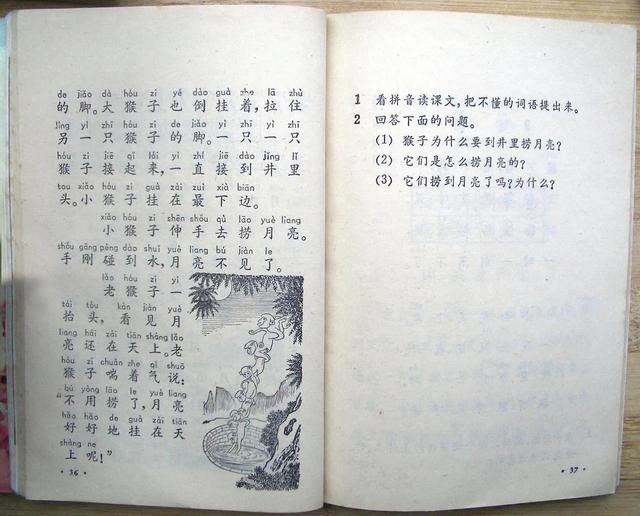 de jiǎo dà hóu zi yě dào guà zhe lā zhù
的脚。大猴子也倒挂着，拉住
lìng yì zhī hóu zi de jiǎo yì zhī yì zhī
另一只猴子的脚。一只一只
hóu zi jiē qǐ lái yì zhí jiē dào jǐng lǐ
猴子接起来，一直接到井里
tou xiǎo hóu zi guà zài zuì xià biān
头。小猴子挂在最下边。
xiǎo hóu zi shēn shǒu qù lāo yuè liang
小猴子伸手去捞月亮。
shǒu gāng pèng dào shuǐ yuè liang bú jiàn le
手刚碰到水，月亮不见了。
lǎo hóu zi yì
老猴子一
tái tóu kàn jiàn yuè
抬头，看见月
liang hái zài tiān shàng lǎo
亮还在天上。老
hóu zi chuǎn zhe qì shuō
猴子喘着气说：
bú yòng lāo le yuè liang
“不用捞了，月亮
hǎo hǎo de guà zài tiān
好好地挂在天
shàng ne
上呢！”
·36·
1 看拼音读课文，把不懂的词语提出来。
2 回答下面的问题。
(1) 猴子为什么要到井里捞月亮？
(2) 它们是怎么捞月亮的？
(3) 它们捞到月亮了吗？为什么？
·37·